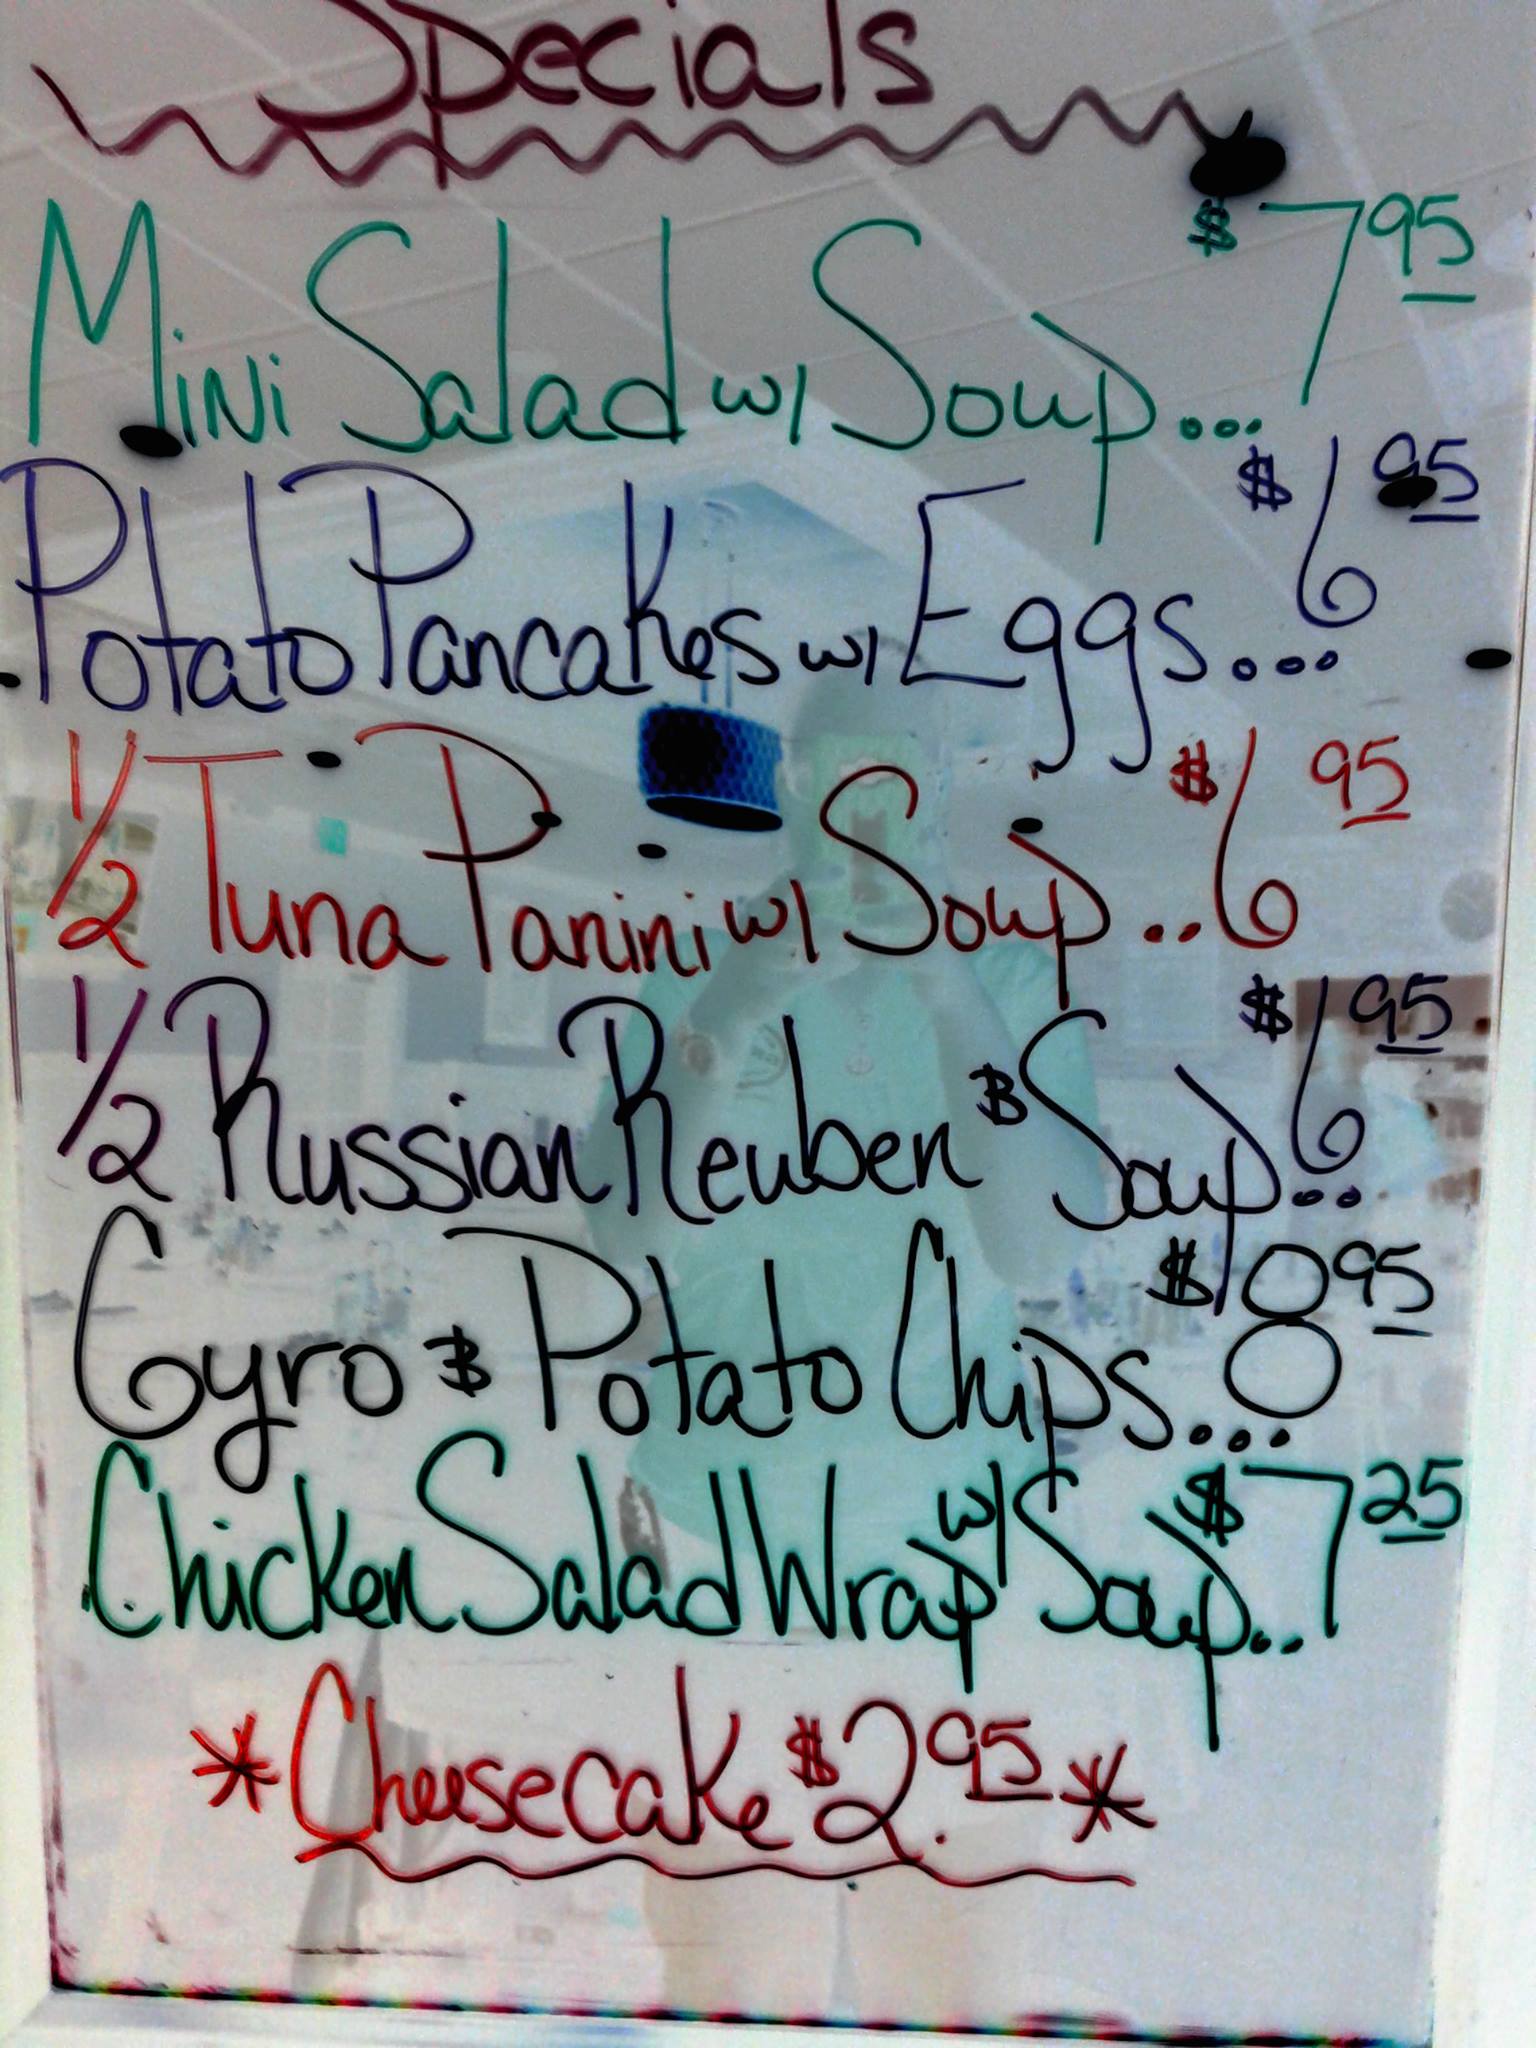 Specials
Mini Salad w/ Soup... $7 95
Potato Pancakes w/ Eggs... $6 95
1/2 Tuna Panini w/ Soup.. $6 95
1/2 Russian Reuben & Soup... $6 95
Gyro & Potato Chips... $8 95
Chicken Salad Wrap w/ Soup.. $7 25
*Cheesecake $2.95*